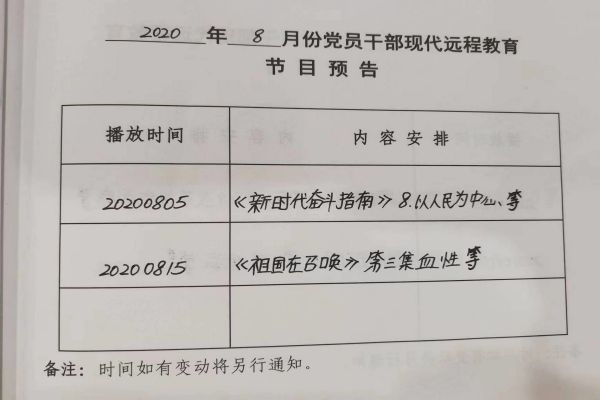 2020 年 8 月份党员干部现代远程教育
节目预告
播放时间 内容安排
20200805 《新时代奋斗指南》8.以人民为中心、等
20200815 《祖国在召唤》第三集血性等
备注：时间如有变动将另行通知。